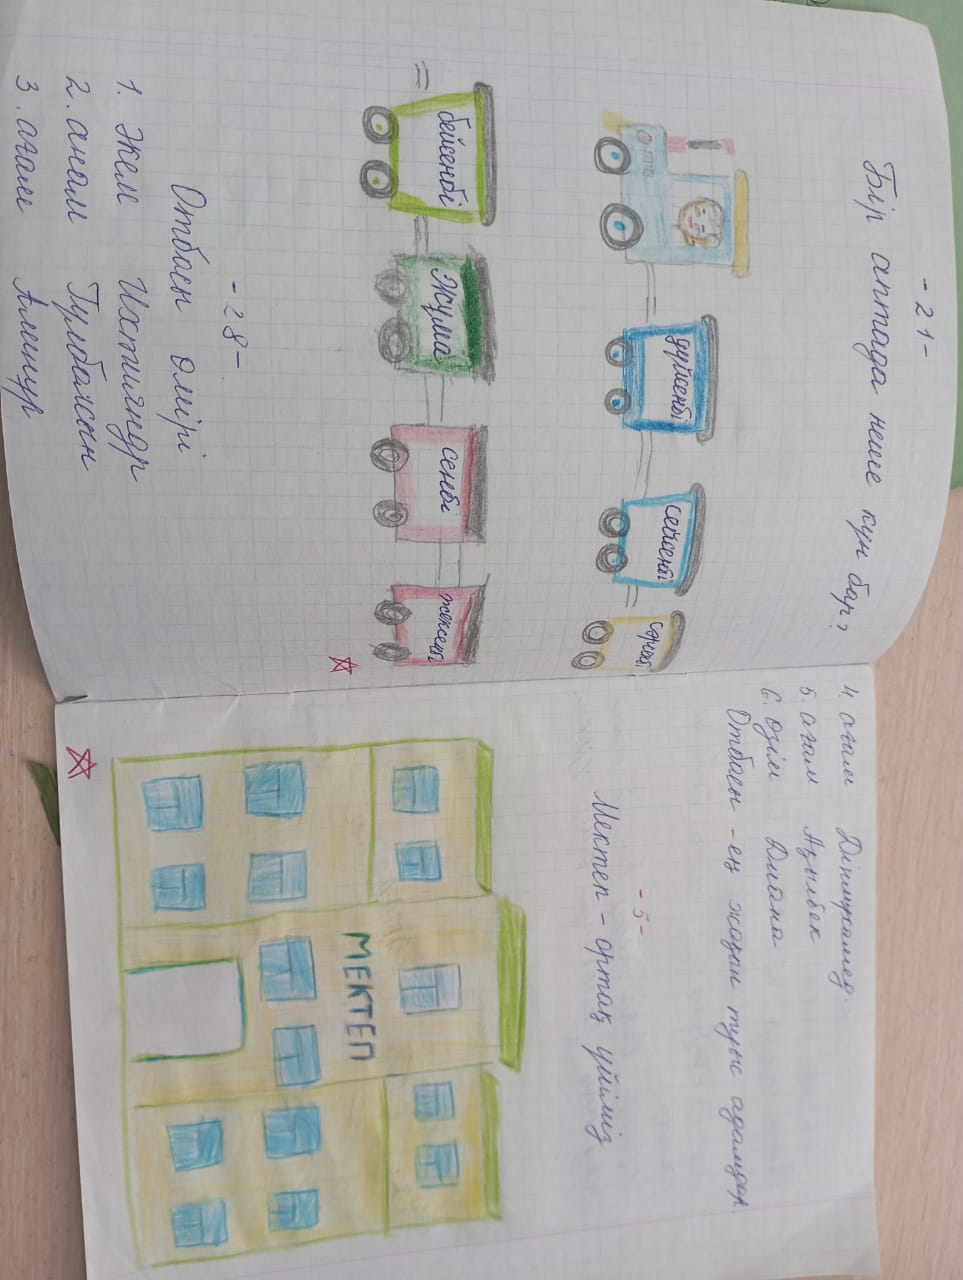 - 21 -
Бір аптада неше күн бар?
дүйсенбі
сейсенбі
сәрсенбі
бейсенбі
Жұма
сенбі
жексенбі
- 28 -
Отбасы өмірі
1. Әкем Ихтияндр
2. анам Гүлбахсын
3. ағам Алинур
4. ағам Дінмұхаммед.
5. ағам Ақылбек
6. өзім Диана
Отбасы - ең жақын туыс адамдар.
- 5 -
Мектеп - ортақ үйіміз
МЕКТЕП